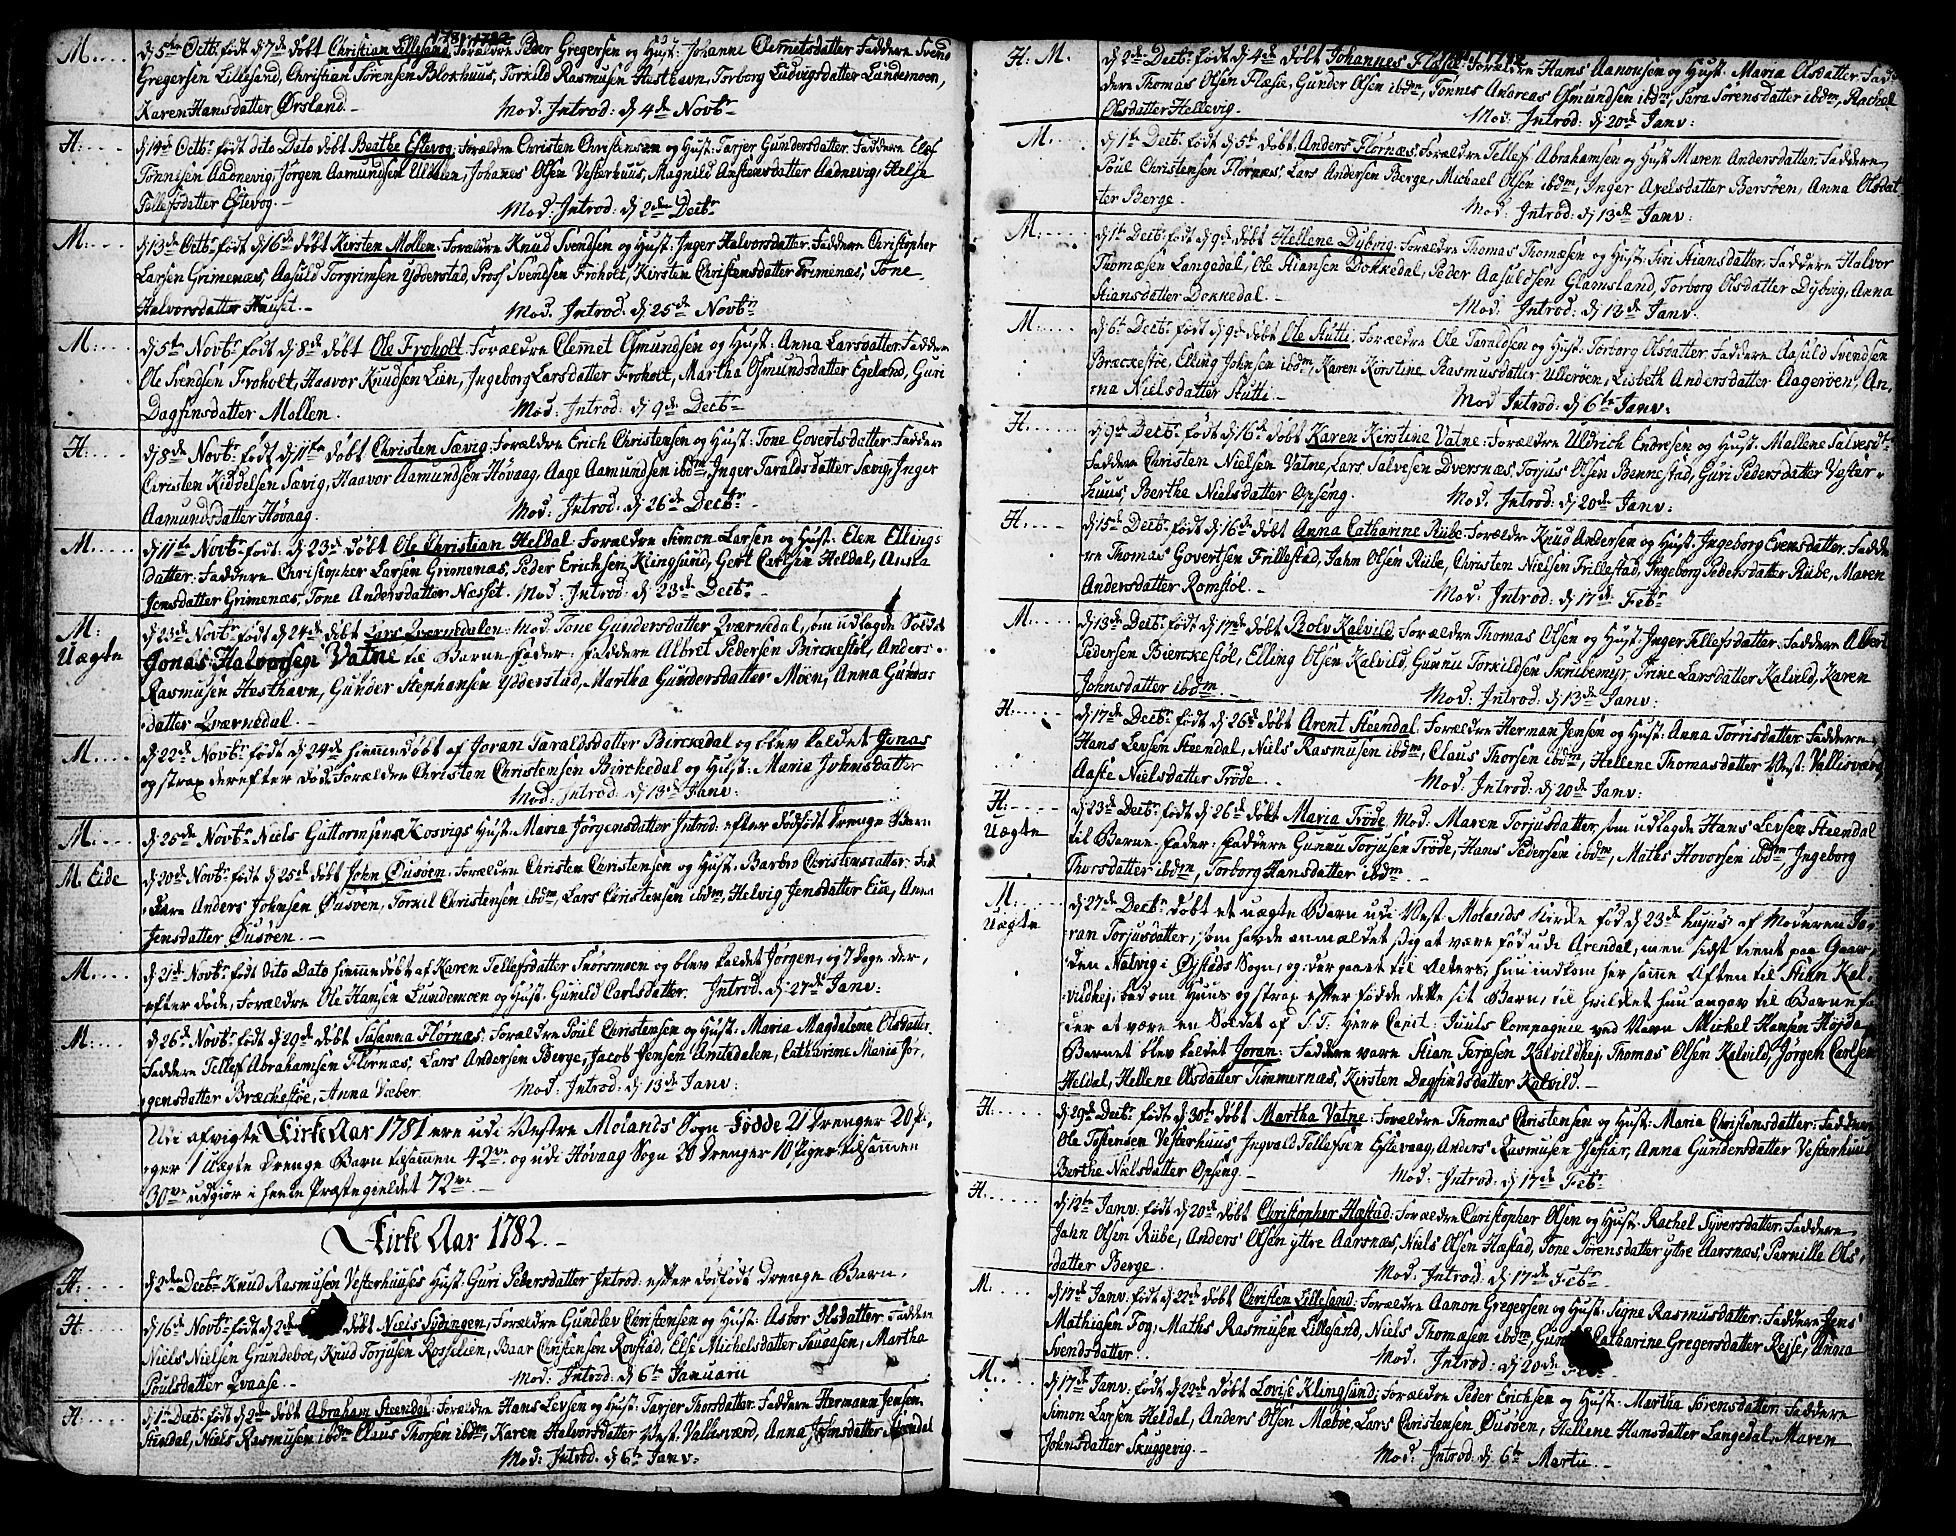 1781. 1782
M. d: 5te Octb: født d: 7de døbt Christian Lillesand. Forældre Peder Gregersen og Hust: Johanne Clemetsdatter. Faddere Svend
Gregersen Lillesand, Christian Sørensen Blokhuus, Torkild Rasmusen Hesthavn, Torborg Ludvigsdatter Lundemoen,
Karen Hansdatter Ørsland. Mod: Introd: d: 4de Novbr
H: d: 14de Octbr født dito Dato døbt Berthe Eslevog. Forældre Christen Christensen og Hust: Tarjer Gundersdatter. Faddere
Tønnesen Aadnevig, Jørgen Aamundsen Ulleøen, Johanes Olsen Vesterhuus, Magnild Anstensdatter Aadnevig, Helje
Tellefsdatter Eslevog. Mod: Introd: d: 2den Decbr
M: d: 13de Octbr født d: 16de døbt Kirsten Mollen. Forældre Knud Svendsen og Hust: Inger Halvorsdatter. Faddere Christopher
Larsen Grimenæs, Aasuld Torgrimsen Ydderstad, Svendsen Froholt, Kirsten Christensdatter Grimenæs, Tone
Halvorsdatter Huuset. Mod. Introd: d: 25de Novbr
M: d: 5te Novbr født d: 8de døbt Ole Froholt. Forældre Clemet Osmundsen og Hust: Anna Larsdatter. Faddere
Ole Svendsen Froholt, Haavor Knudsen Lien, Ingeborg Larsdatter Froholt, Martha Osmundsdatter Egeland, Guri
Dagfinsdatter Mollen. Mod: Introd: d: 9de Decbr
H: d: 8de Novbr født d: 11te døbt Christen Sævig. Forældre Erich Christensen og Hust: Tone Govertsdatter. Faddere
Christen Kiddelsen Sævig, Haavor Aamundsen Høvaag, Aage Aamundsen ibdm, Inger Taraldsdatter Sævig, Inger
Aamundsdatter Høvaag. Mod: Introd: d: 26de Decbr
M. d: 11te Novbr født d: 23de døbt Ole Christian Heldal. Forældre Simon Larsen og Hust: Elen Ellings
datter. Faddere Christopher Larsen Grimenæs, Peder Erichsen Klingsund, Gert Carlsen Heldal, Anna
Jensdatter Grimenæs, Tone Andersdatter Næsset. Mod: Introd: d: 23de Decbr
M: Uægte d: 23de Novbr født d: 24de døbt Lars Qvernedalen. Mod: Tone Gundersdatter Qværnedal, som udlagde Soldat
Jonas Halvorsen Vatne til Barne Fader: Faddere Albret Pedersen Birckestøl, Anders
Rasmusen Hesthavn, Gunder Stephansen Ydderstad, Martha Gundersdatter Moen, Anna Gunders
datter Qværnedal.
M. d: 22de Novbr født d: 24de hiemmedøbt af Joran Taraldsdatter Birckedal og blev kaldet Jonas
og strax derefter død. Forældre Christen Christensen Birckedal og Hust: Maria Johnsdatter
Mod: Introd: d: 13de Janv:
M. d: 25de Novbr Niels Guttormsen Kosvigs Hust: Maria Jørgensdatter Introd: efter dødfødt Drenge Barn
M. Eide d: 20de Novbr født d: 25de døbt John Øusøen. Forældre Christen Christensen og Hust: Barbro Christensdatter. Fad
dere Anders Johnsen Øusøen, Torkil Christensen ibdm, Lars Christensen ibdm, Helvig Jensdatter Eide, Anna
Jensdatter Øusøen.
M. d: 21de Novbr født dito Dato hiemmedøbt af Karen Tellefsdatter Snørsmoen og blev kaldet Jørgen, og 7 Dage der,
efter døde, Forældre Ole Hansen Lundemoen og Hust: Gunild Carlsdatter. Introd: d: 27de Janv:
M: d: 26de Novbr født d: 29de døbt Susanna Flornæs. Forældre Poul Christensen og Hust: Maria Magdalene Olsdatter.
Faddere Tellef Abrahamsen Flornæs, Lars Andersen Berge, Jacob Jensen Amtedalen, Catharine Maria Jør,
gensdatter Bræckestøe, Anna Væber. Mod: Introd: d: 13de Janv:
Udi afvigte Kirke Aar 1781 ere udi Vestre Molands Sogn Fødde 21 Drenger 20 Pi,
ger 1 Uægte Drenge Barn tilsammen 42ve og udi Høvaag Sogn 20 Drenger 10 Piger tilsammen
30ve udgiør i heele Præstegieldet 72ve
Kirke Aar 1782.
H: d: 2den Decbr Knud Rasmusen Vesterhuuses Hust: Guri Pedersdatter Introd: efter dødfødt Drenge Barn.
H. d: 16de Novbr født d: 2de døbt Niels Sydingen, Forældre Gundlev Christensen og Hust: Asbor Olsdatter. Faddere
Niels Nielsen Grundeboe, Knud Torjusen Rosselien, Baar Christensen Rovstad, Else Michelsdatter, Martha
Poulsdatter Qvaase. Mod: Introd: d: 6te Januarii
H. d: 1te Decbr født d: 2de døbt Abraham Steendal. Forældre Hans Levsen og Hust: Tarjer Thorsdatter. Faddere Hermann Jensen
Stendal, Niels Rasmusen ibdm, Claus Thorsen ibdm, Karen Halvorsdatter Vest: Vallesværd, Anna Johnsdatter Stendal
Mod: Introd. d: 6te Janv:
1781. 1782
H. M. d: 2de Decbr født d: 4de døbt Johannes Flæsøe. Forældre Hans Aanonsen og Hust: Maria Olsdatter. Fad
dere Thomas Olsen Flæsøe, Gunder Olsen ibdm, Tønnes Andreas Osmundsen ibdm, Sara Sørensdatter ibdm, Rachel
Olsdatter Hellevig. Mod: Introd: d: 20de Janv:
M. d: 1te Decbr født d: 5te døbt Anders Flornæs, Forældre Tellef Abrahamsen og Hust Maren Andersdatter. Faddere
Poul Christensen Flornæs, Lars Andersen Berge, Michael Olsen ibdm, Inger Axelsdatter Bersøen, Anna Olsdat
ter Berge. Mod: Introd: d: 13de Janv:
M: d: 1te Decbr født d: 9de døbt Hellene Dybvig. Forældre Thomas Thomæsen og Hust: Siri Stiansdatter. Faddere Halvor
Thomæsen Langedal, Ole Stiansen Dokkedal, Peder Aasuldsen Glamsland, Torborg Olsdatter Dybvig, Anna
Stiansdatter Dokkedal. Mod: Introd: d: 13de Janv.
M: d: 6te Decbr født d: 9de døbt Ole Hutti. Forældre Ole Taraldsen og Hust: Torborg Olsdatter. Faddere Aasuld Svendsen
Bræckestøe, Elling Johnsen ibdm, Karen Kirstine Rasmusdatter Ulleøen, Lisbeth Andersdatter Aagerøen, An,
na Nielsdatter Hutti. Mod Introd: d: 6te Janv:
H: d: 9de Decbr født d: 16de døbt Karen Kirstine Vatne. Forældre Uldrich Endresen og Hust: Mallene Salvesdtr
Faddere Christen Nielsen Vatne, Lars Salvesen Dversnæs, Torjus Olsen Bennestad, Guri Pedersdatter Vester
huus, Berthe Nielsdatter Opseng. Mod: Introd: d: 20de Janv:
H. d: 15de Decbr født d: 16de døbt Anna Catharine Rübe. Forældre Knud Andersen og Hust: Ingeborg Evensdatter. Fadde
re Thomas Govertsen Frillestad, Jahn Olsen Rübe, Christen Nielsen Frillestad, Ingeborg Pedersdatter Rübe, Maren
Andersdatter Romstøl. Mod: Introd: d: 17de Febr
M. d: 13de Decbr født d: 17de døbt Bolv Kalvild. Forældre Thomas Olsen og Hust: Inger Tellefsdatter. Faddere Albert
Pedersen Bierckestøl, Elling Olsen Kalvild, Gunnu Torkildsen Skribemyr, Trine Larsdatter Kalvild, Karen
Johnsdatter ibdm. Mod: Introd: d: 13de Janv:
H: d: 17de Decbr født d: 26de døbt Arent Steendal. Forældre Herman Jensen og Hust: Anna Torrisdatter. Faddere
Hans Levsen Steendal, Niels Rasmusen ibdm, Claus Thorsen ibdm, Hellene Thomasdatter Vest: Vallisværd,
Aaste Nielsdatter Trøde. Mod: Introd: d: 20de Janv:
H: Uægte d: 23de Decbr født d: 26de døbt Maria Trøde. Mod: Maren Torjusdatter, som udlagde Hans Levsen Steendal
til Barne-Fader: Faddere Gunnu Torjusen Trøde, Hans Pedersen ibdm, Maths Hovorsen ibdm, Ingeborg
Thorsdatter ibdm, Torborg Hansdatter ibdm.
M. Uægte d: 27de Decbr døbt et uægte Barn udi Vest: Molands Kirke fød d: 23de hujus af Moderen Jo
ran Torjusdatter, som havde anmældet sig at være fød udi Arendal, men sidst tient paa Gaar
den Natvig i Øistads Sogn, og der gaaet til Alters, hun indkom her samme Aften til Stian Kal
vildhej, bad om Huus og strax efter fødde dette sit Barn, til hvilket hun angav til Barnefa
der at være en Soldat af S.T. Herr Capit: Juuls Compagnie ved Navn Michel Hansen Høida
Barnet blev kaldet Joran: Faddere vare Stian Terjesen Kalvildhej, Thomas Olsen Kalvild, Jørgen Carlsen
Heldal, Hellene Olsdatter Timmernæs, Kirsten Dagfindsdatter Kalvild.
H. d: 29de Decbr født d: 30te døbt Martha Vatne. Forældre Thomas Christensen og Hust: Maria Christensdatter. Faddere
Ole Tostensen Vesterhuus, Ingvald Tellefsen Eslevaag, Anders Rasmusen Isefiær, Anna Gundersdatter Vesterhuus
Berthe Nielsdatter Opseng. Mod: Introd: d: 17de Febr
H. d: 12te Janv. født d: 20de døbt Christopher Hæstad. Forældre Christopher Olsen og Hust: Rachel Syversdatter. Faddere
Jahn Olsen Rübe, Anders Olsen yttre Aarsnæs, Niels Olsen Hæstad, Tone Sørensdatter yttre Aarsnæs, Pernille Ols,
datter Berge. Mod: Introd: d: 17de Febr
M. d: 17de Janv. født d: 22de døbt Christen Lillesand. Forældre Aanon Gregersen og Hust: Signe Rasmusdatter. Faddere Jens
Mathiasen Fog, Maths Rasmusen Lillesand, Niels Thomæsen ibdm, Catharine Gregersdatter Rejse, Anna
Svendsdatter. Mod: Introd: d: 20de
M. d: 17de Janv: født d: 22de døbt Lovise Klingsund, Forældre Peder Erichsen og Hust: Martha Sørensdatter. Faddere
Simon Larsen Heldal, Anders Olsen Mæbøe, Lars Christensen Øusøen, Hellene Hansdatter Langedal, Maren
Johnsdatter Skuggevig. Mod: Introd: d: 6te Martii